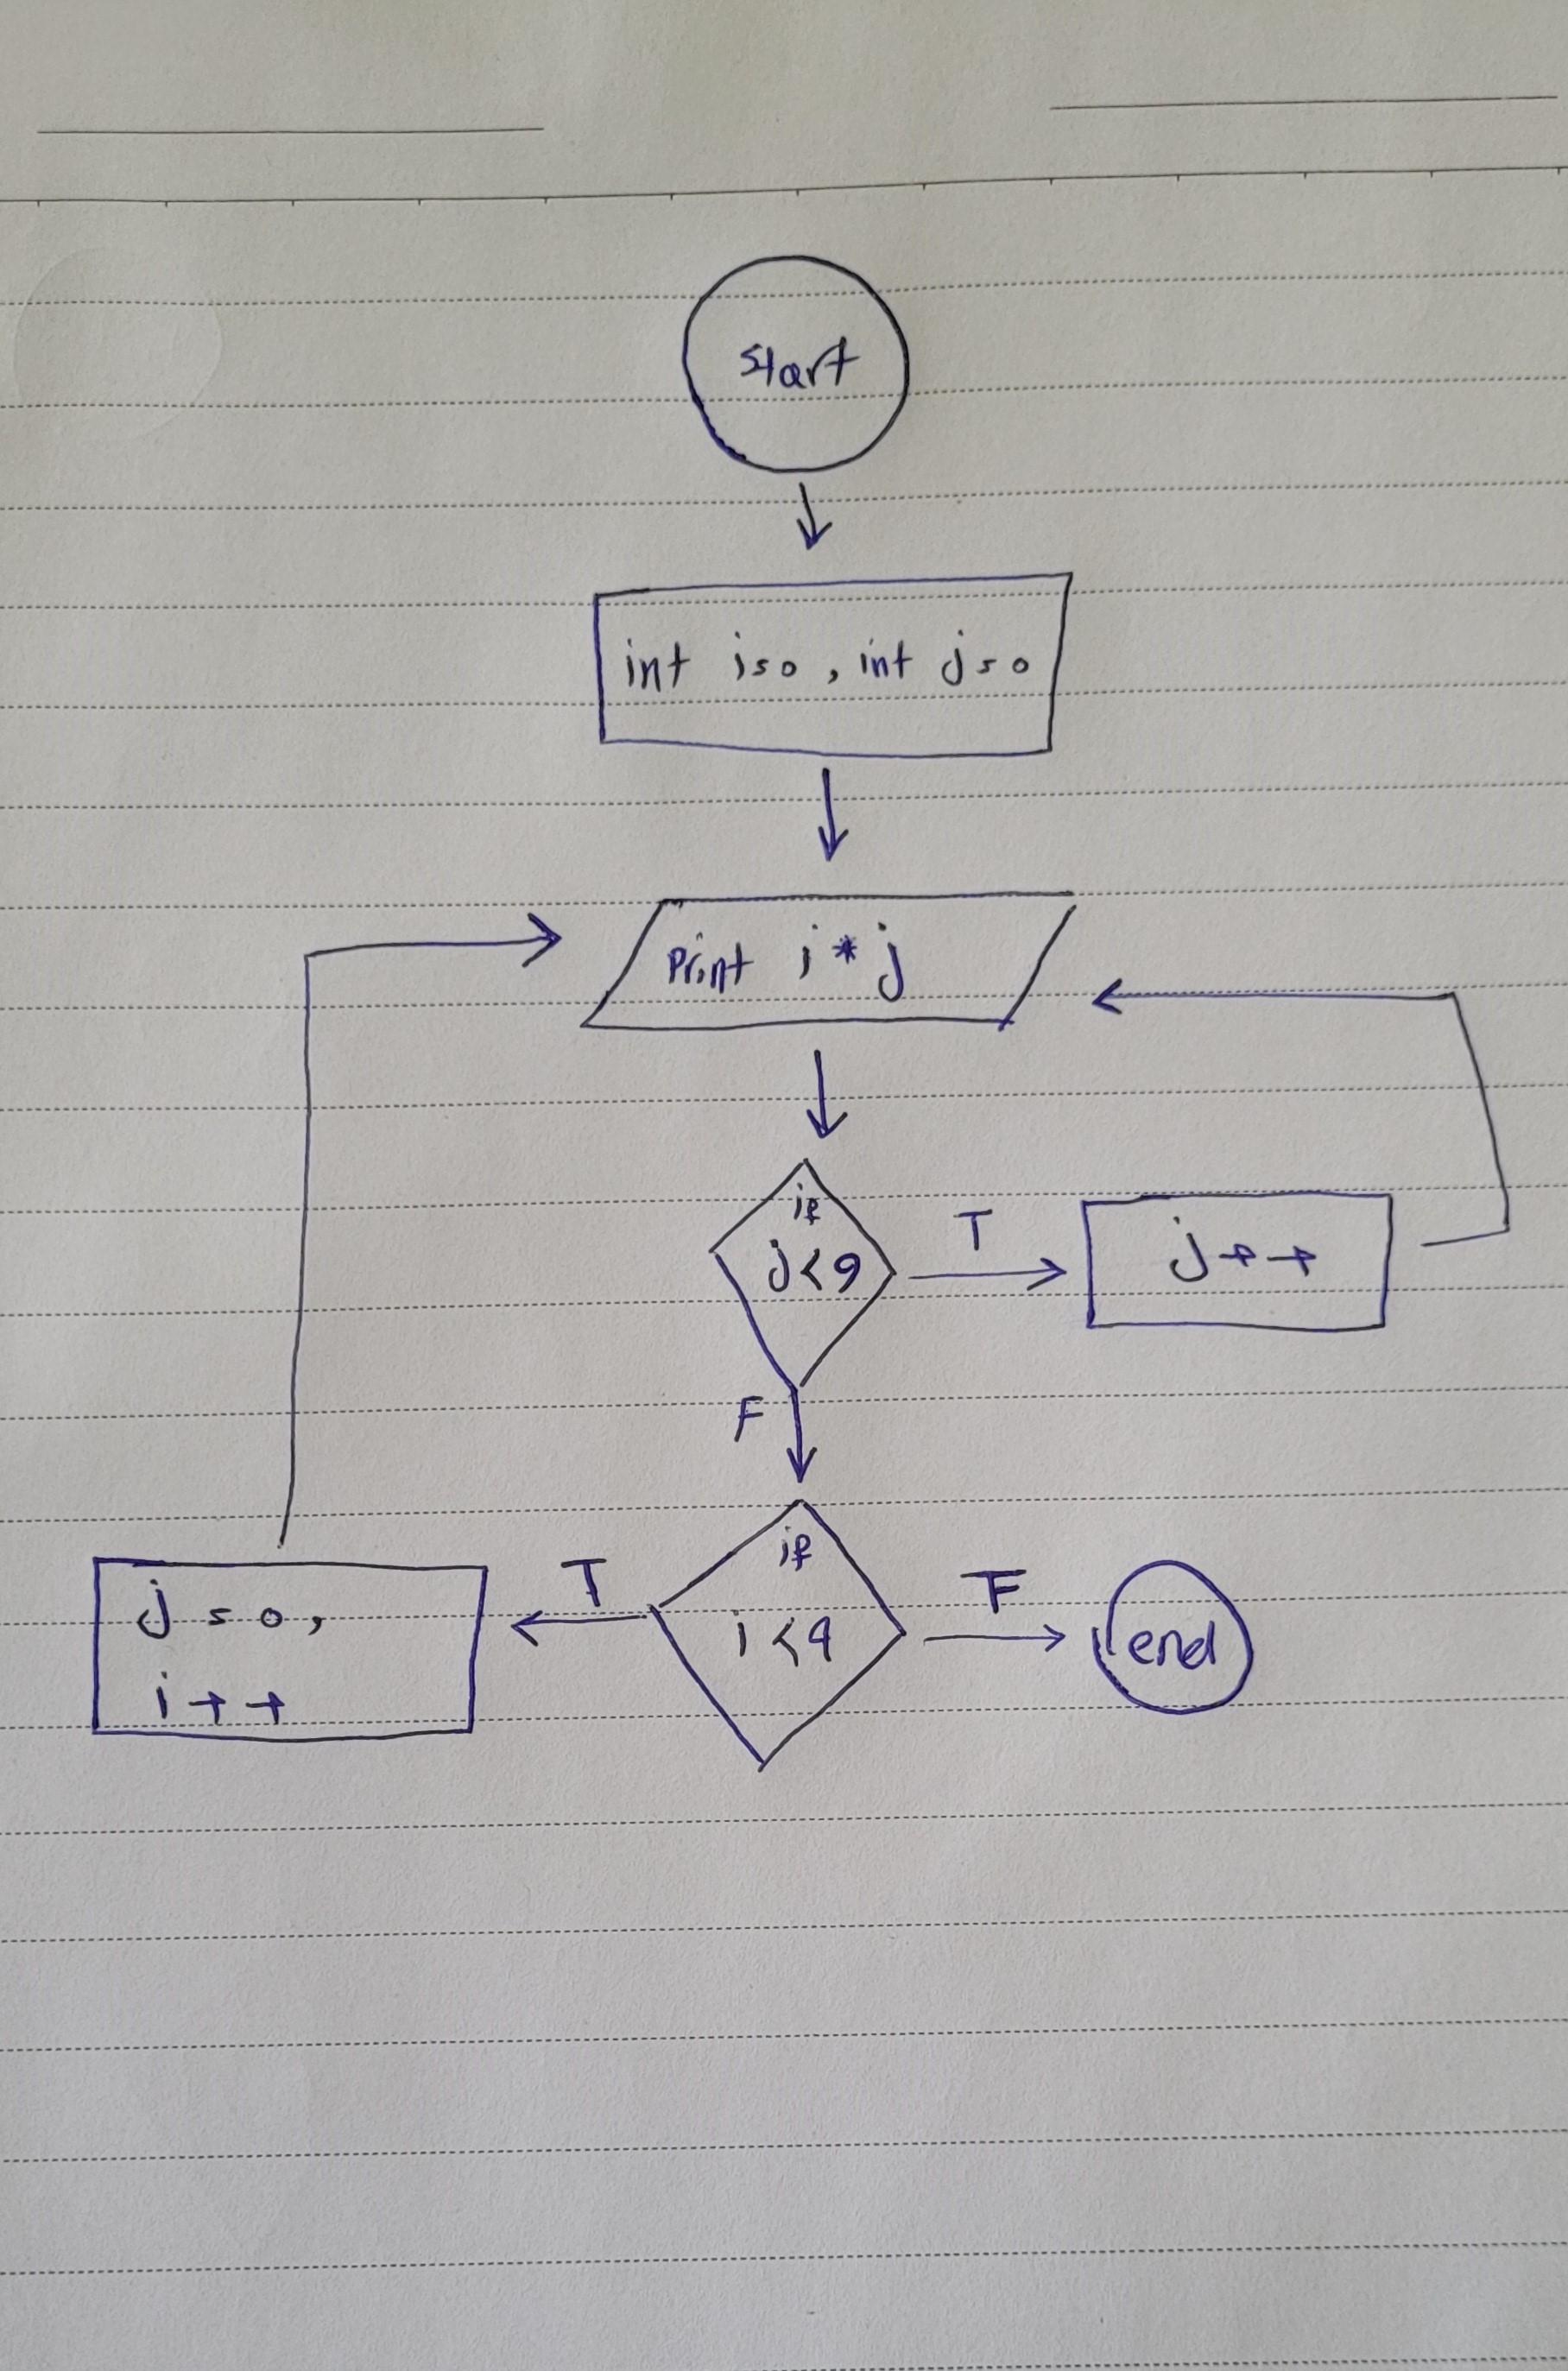 Start
int i=0, int j=0
Print i * j
if
j<9
T
j++
F
if
i<9
T
F
j=0,
i++
end